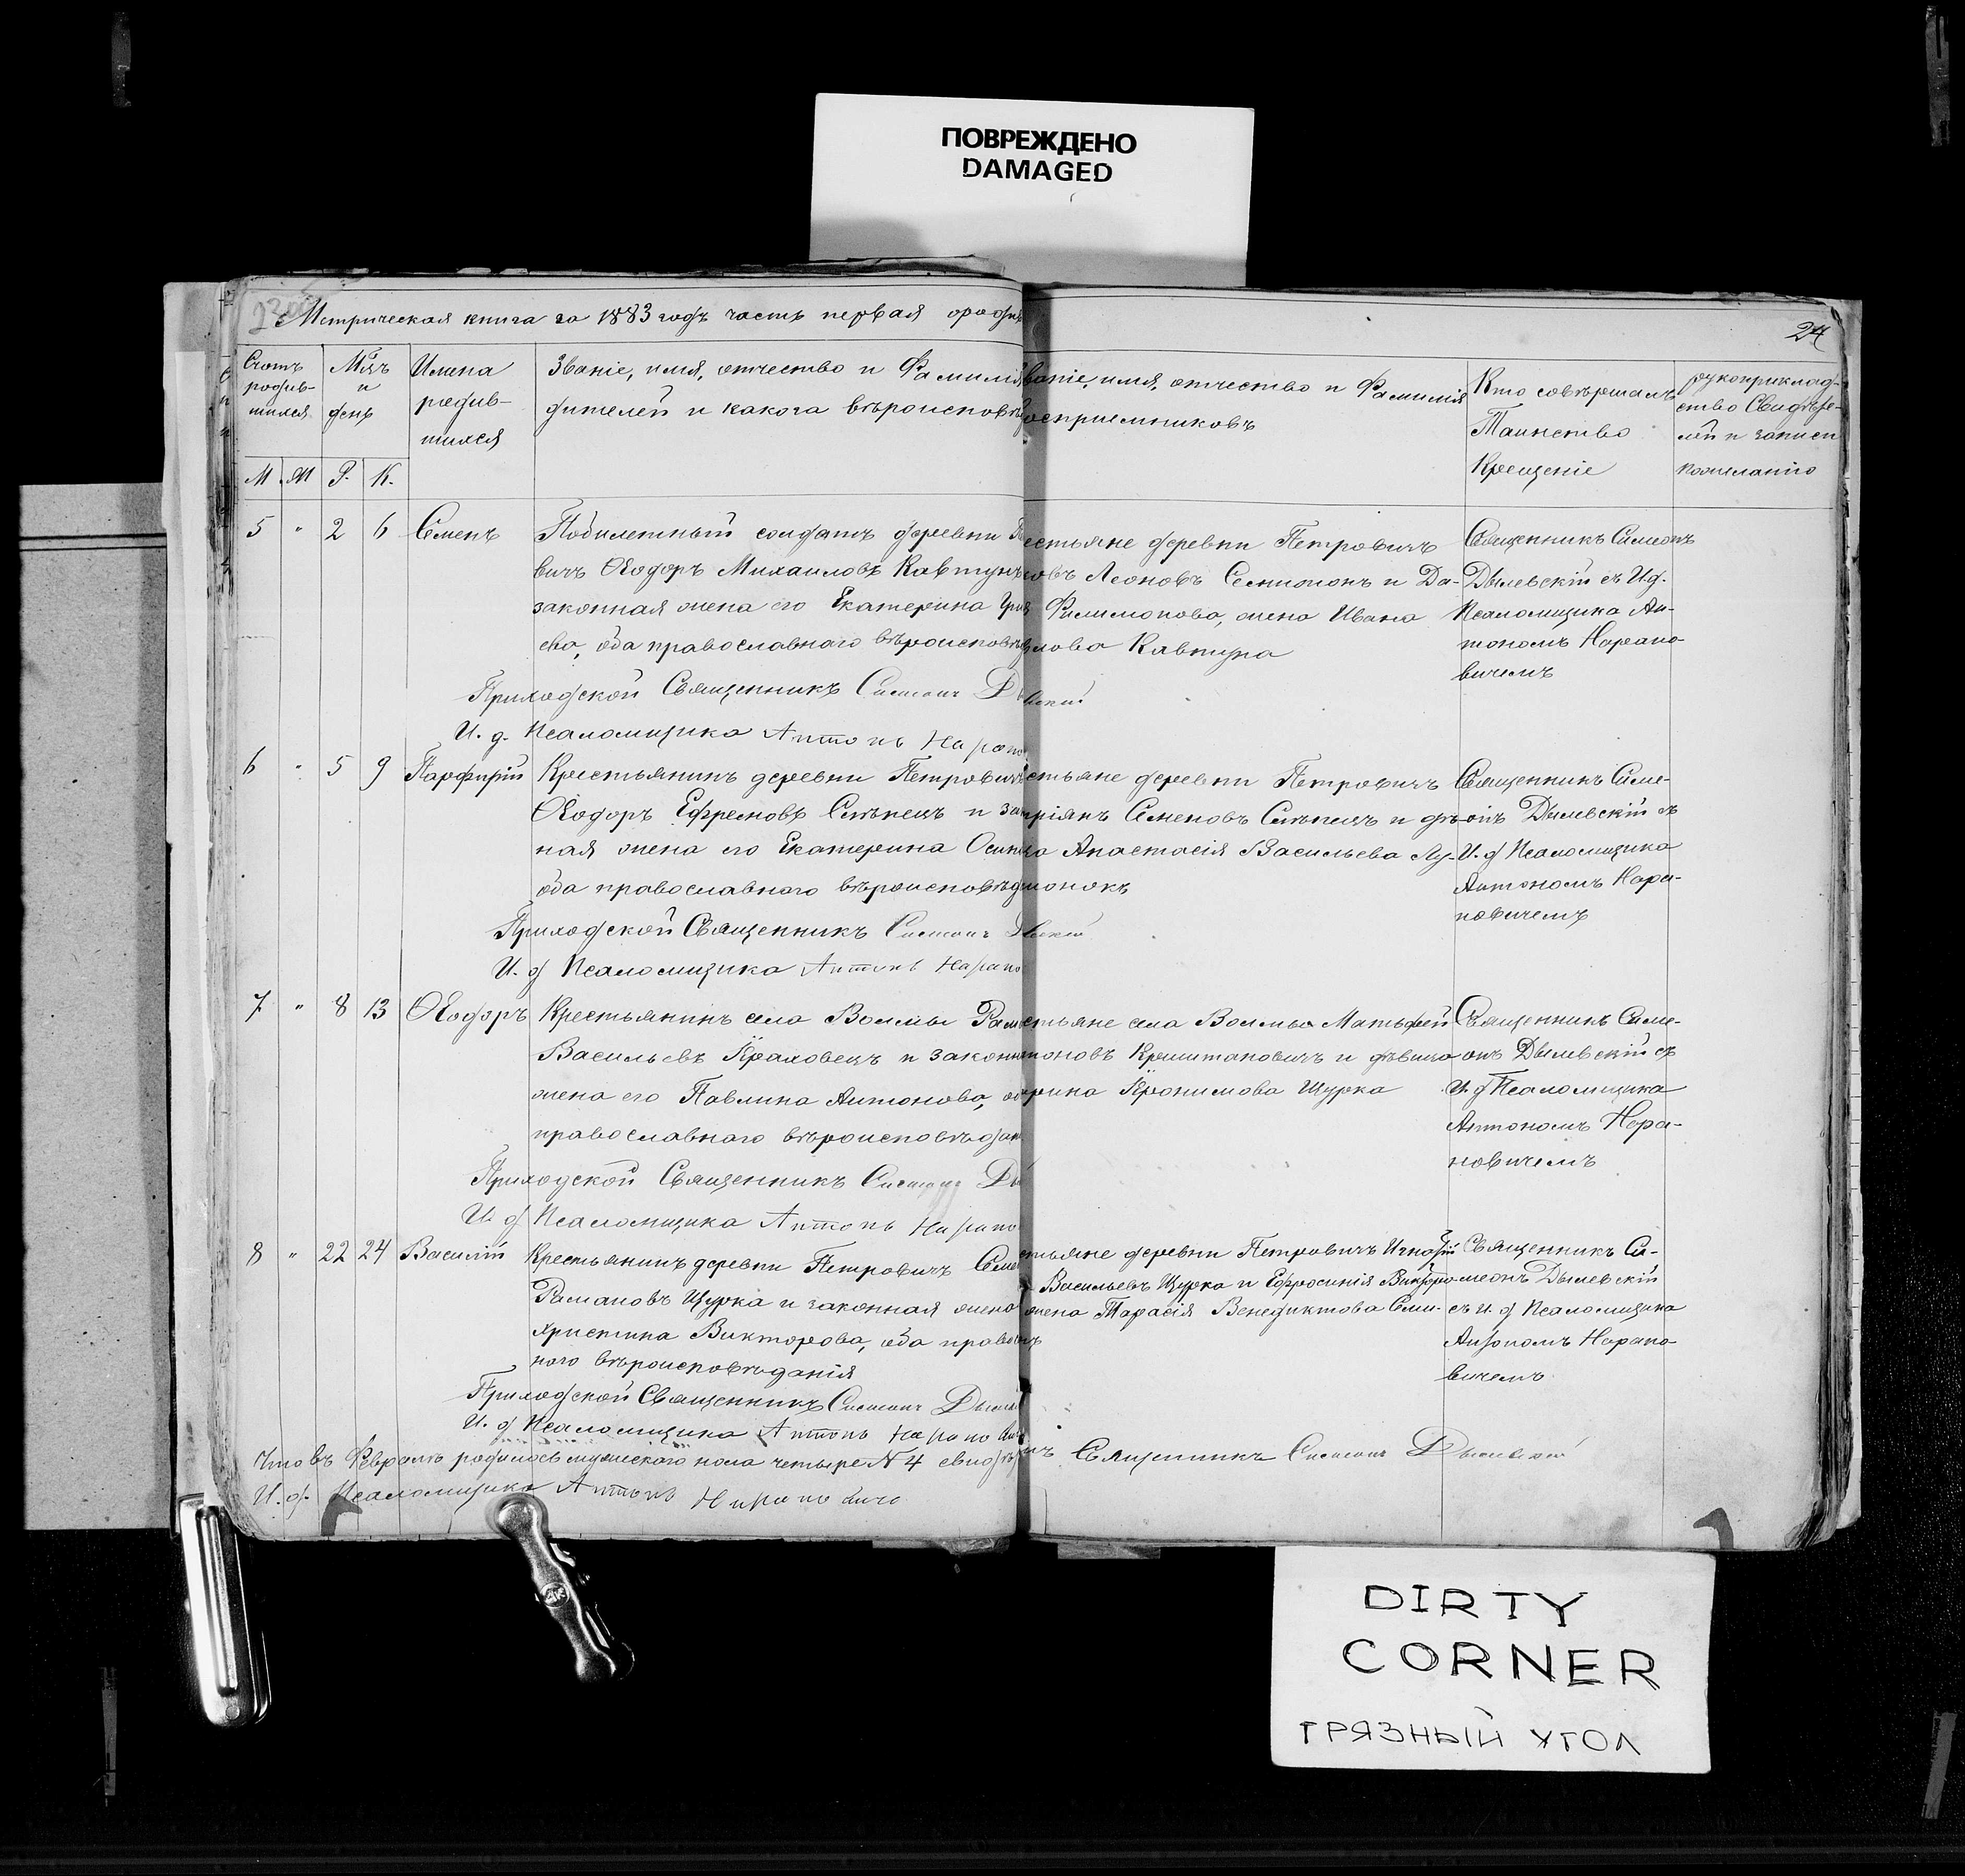 ПОВРЕЖДЕНО
DAMAGED
Метрическая книга за 1883 годъ часть первая о родив
24
Счетъ родив-шихся
Мѣсяцъ и день
Имена родив-шихся
Званіе, имя, отчество и Фамилія
дителей и какога вѣроисповѣ
ваніе, имя, отчество и Фамилія
осприемниковъ
Кто совѣршалъ
Таинство
Крещеніе
рукоприклад-
ство Свидѣте-
лей и записи
пожеланію
М Ж Р. К.
5 " 2 6 Семенъ
Побилетный солдатъ деревни П
вичъ Ѳеодоръ Михаиловъ Кавтунъ
законная жена его Екатерина Гри
ева, оба православнаго вѣроисповѣ
Приходской Священникъ Симеонъ Ды
И. д. Псаломщика Антонъ Нарано
естьяне деревни Петровичъ
овъ Леоновъ Семионъ и Да-
Филимонова, жена Ивана
лова Кавтуна
вскій
Священникъ Симеонъ
Дылевскій съ И.д.
Псаломщика Ан-
тономъ Нарано-
вичемъ
6 " 5 9 Парфирій
Крестьянинъ деревни Петровичъ
Ѳеодоръ Ефремовъ Слѣпецъ и зак
ная жена его Екатерина Осип
оба православнаго вѣроисповѣд
Приходской Священникъ Симеонъ Ды
И. д Псаломщика Антонъ Нарано
стьяне деревни Петровичъ
пріянъ Семеновъ Слѣпецъ и дѣ-
ка Анастасія Васильева Лу-
нонокъ
вскій
Священникъ Симе-
онъ Дылевскій съ
И. д Псаломщика
Антономъ Нара-
новичемъ
7 " 8 13 Ѳеодоръ
Крестьянинъ села Волмы Рам
Васильевъ Краховецъ и законн
жена его Павлина Антонова, об
православнаго вѣроисповѣдан
Приходской Священникъ Симеонъ Ды
И. д Псаломщика Антонъ Нарано
стьяне села Волмы Матѳей
моновъ Криштановичъ и дѣвица
рина Іеронимова Щурка
Священникъ Симе-
онъ Дылевскій съ
И. д Псаломщика
Антономъ Нара-
новичемъ
8 " 22 24 Василій
Крестьянинъ деревни Петровичъ Семе
Рамановъ Щурка и законная жена
Христина Викторова, оба правос
наго вѣроисповѣданія
Приходской Священникъ Симеонъ Дылев
И. д Псаломщика Антонъ Нарано
стьяне деревни Петровичъ Игнатій
Васильевъ Щурка и Ефросинія Викторо
жена Тарасія Венедиктова Сли-
Священникъ Си-
меонъ Дылевскій
съ И. д Псаломщика
Антономъ Нарано-
вичемъ
Что въ Февралѣ родилось мужескаго пола четыре N 4 свидѣтельств
Священникъ Симеонъ Дылевскій
И. д. Псаломщика Антонъ Наранович
DIRTY
CORNER
ГРЯЗНЫЙ УГОЛ